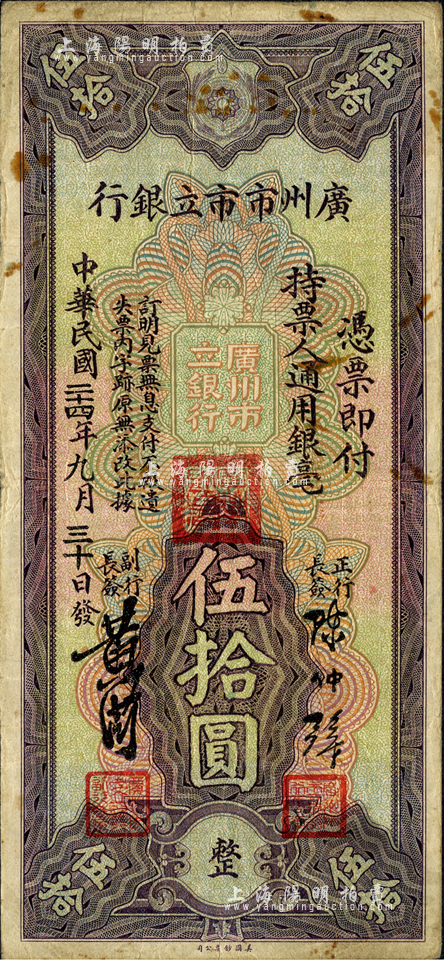 上海陽明拍賣
www.yangmingauction.com
伍拾
伍拾
廣州市市立銀行
憑票即付
持票人通用銀毫
廣州市
立銀行
伍拾圓
整
訂明見票無息支付
失票內字跡原無添改此據
中華民國二十四年九月三十日發
正行
長簽
陳仲璧
副行
長簽
上海陽明拍賣
www.yangmingauction.com
伍拾
伍拾
上海陽明拍賣
www.yangmingauction.com
美國鈔票公司